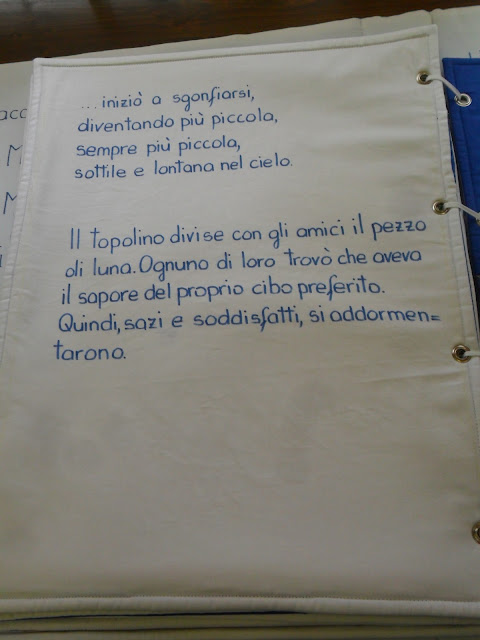 ...iniziò a sgonfiarsi,
diventando più piccola,
sempre più piccola,
sottile e lontana nel cielo.
Il topolino divise con gli amici il pezzo
di luna. Ognuno di loro trovò che aveva
il sapore del proprio cibo preferito.
Quindi, sazi e soddisfatti, si addormen=
tarono.